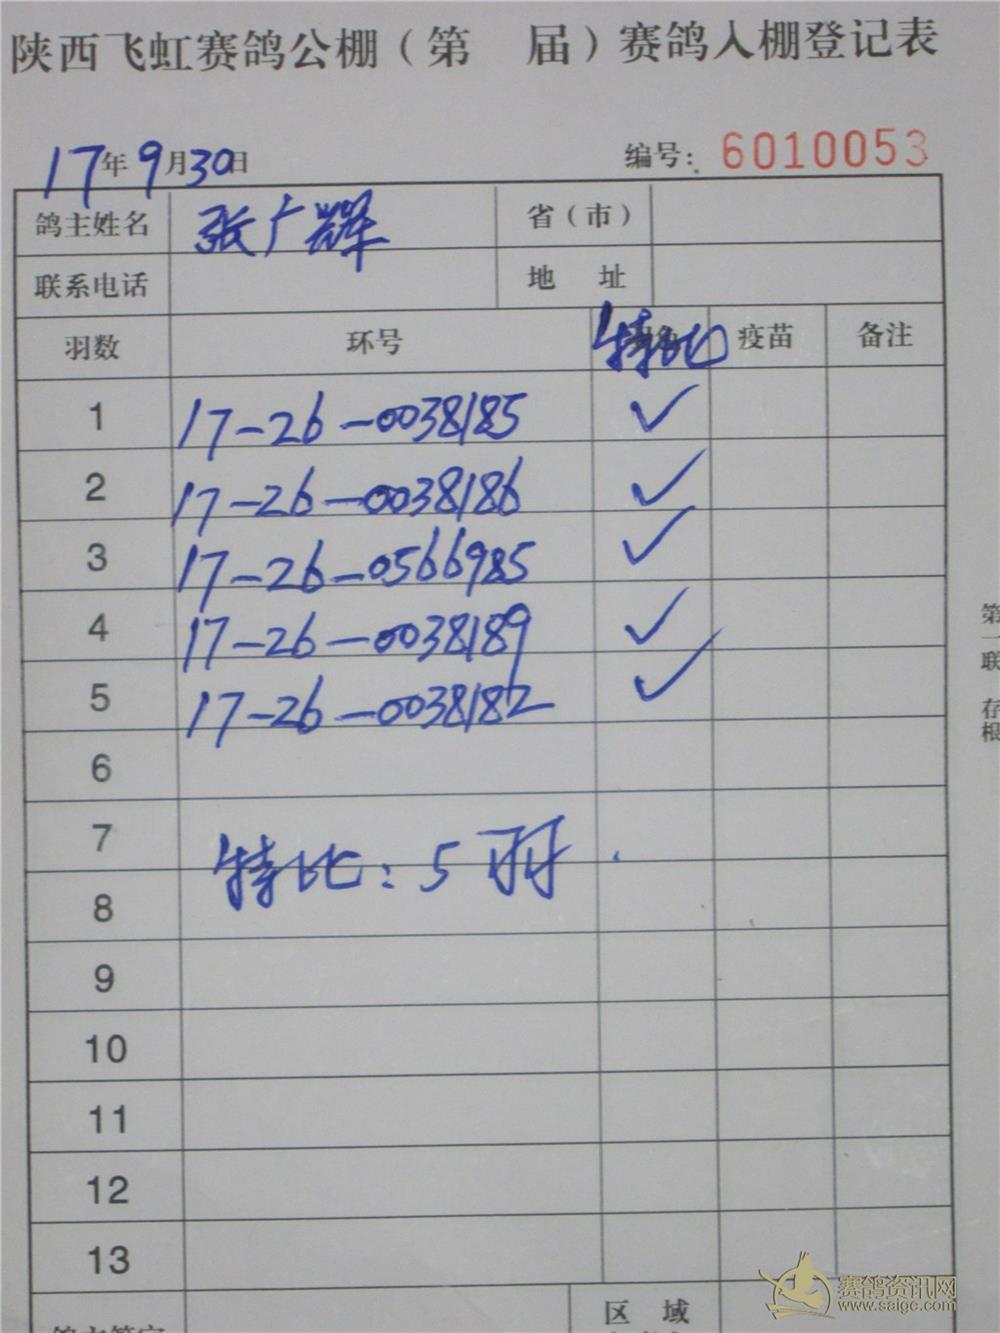 陕西飞虹赛鸽公棚（第 届）赛鸽入棚登记表
17年9月30日 编号：6010053
鸽主姓名 张广辉 省（市）
联系电话 地 址
羽数 环号 特比 疫苗 备注
1 17-26-0038185 ✓
2 17-26-0038186 ✓
3 17-26-0566985 ✓
4 17-26-0038189 ✓
5 17-26-0038182 ✓
6
7
特比：5羽.
8
9
10
11
12
13
区 域
鸽主签字
第一联 存根
赛鸽资讯网
www.saigc.com